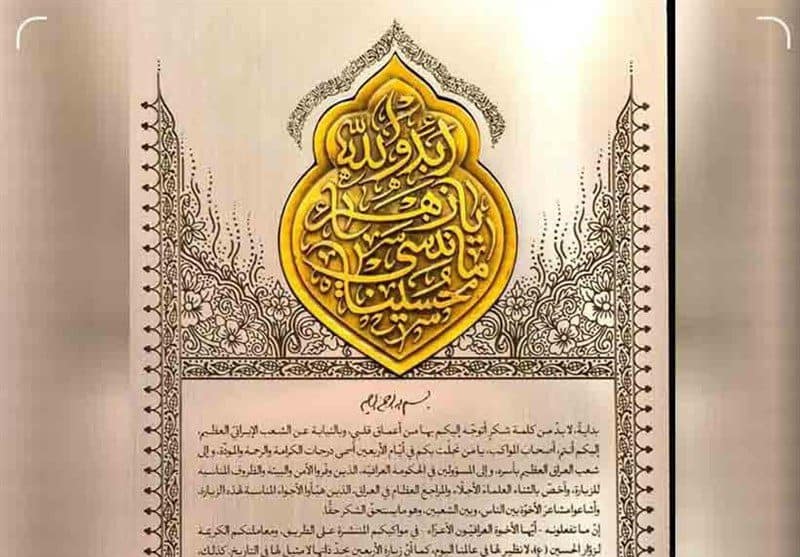 أبد والله
يا زهراء
ما ننسى
حسيناه
بداية، لا بدّ من كلمة شكرٍ أتوجّه إليكم بها من أعماق قلبي، وبالنيابة عن الشعب الإيرانيّ العظيم،
إليكم أنتم، أصحاب المواكب، يا من تجلّت بكم في أيّام الأربعين أسمى درجات الكرامة والرحمة والمودّة، وإلى
شعب العراق العظيم بأسره، وإلى المسؤولين في الحكومة العراقيّة، الذين وفّروا الأمن والبيئة والظروف المناسبة
للزيارة، وأخصّ بالثناء العلماء الأجلّاء والمراجع العظام في العراق، الذين هيّأوا الأجواء المناسبة لهذه الزيارة،
وأشاعوا مشاعر الأخوّة بين الناس، وبين الشعبين، وهو ما يستحقّ الشكر حقًّا.
إنّ ما تفعلونه - أيّها الأخوة العراقيّون الأعزّاء - في مواكبكم المنتشرة على الطريق، ومعاملتكم الكريمة
لزوّار الحسين (ع)، لا نظير لها في عالمنا اليوم، كما أنّ زيارة الأربعين بحدّ ذاتها لا مثيل لها في التاريخ. كذلك،